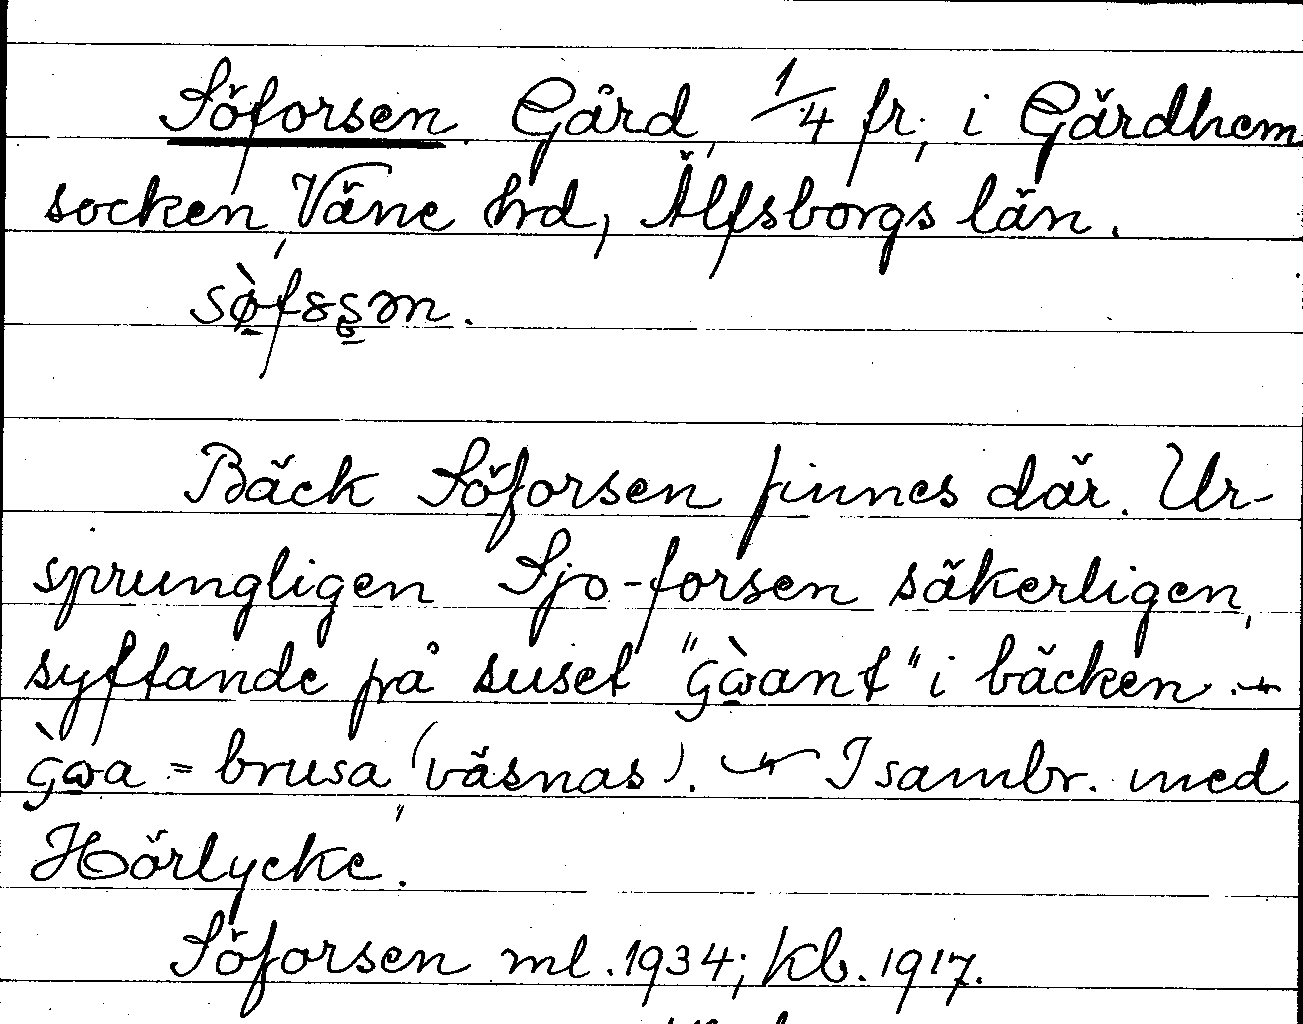 Söforsen. Gård, 1/4 fr, i Gärdhem
socken, Väne hrd, Älfsborgs län.
sø̀fsʂən.
Bäck Söforsen finnes där. Ur-
sprungligen Sjo-forsen säkerligen,
syftande på suset "gɷ̀ant" i bäcken. -
gɷ̀a = brusa (väsnas). - I sambr. med
Hörlycke".
Söforsen ml. 1934; kb. 1917.